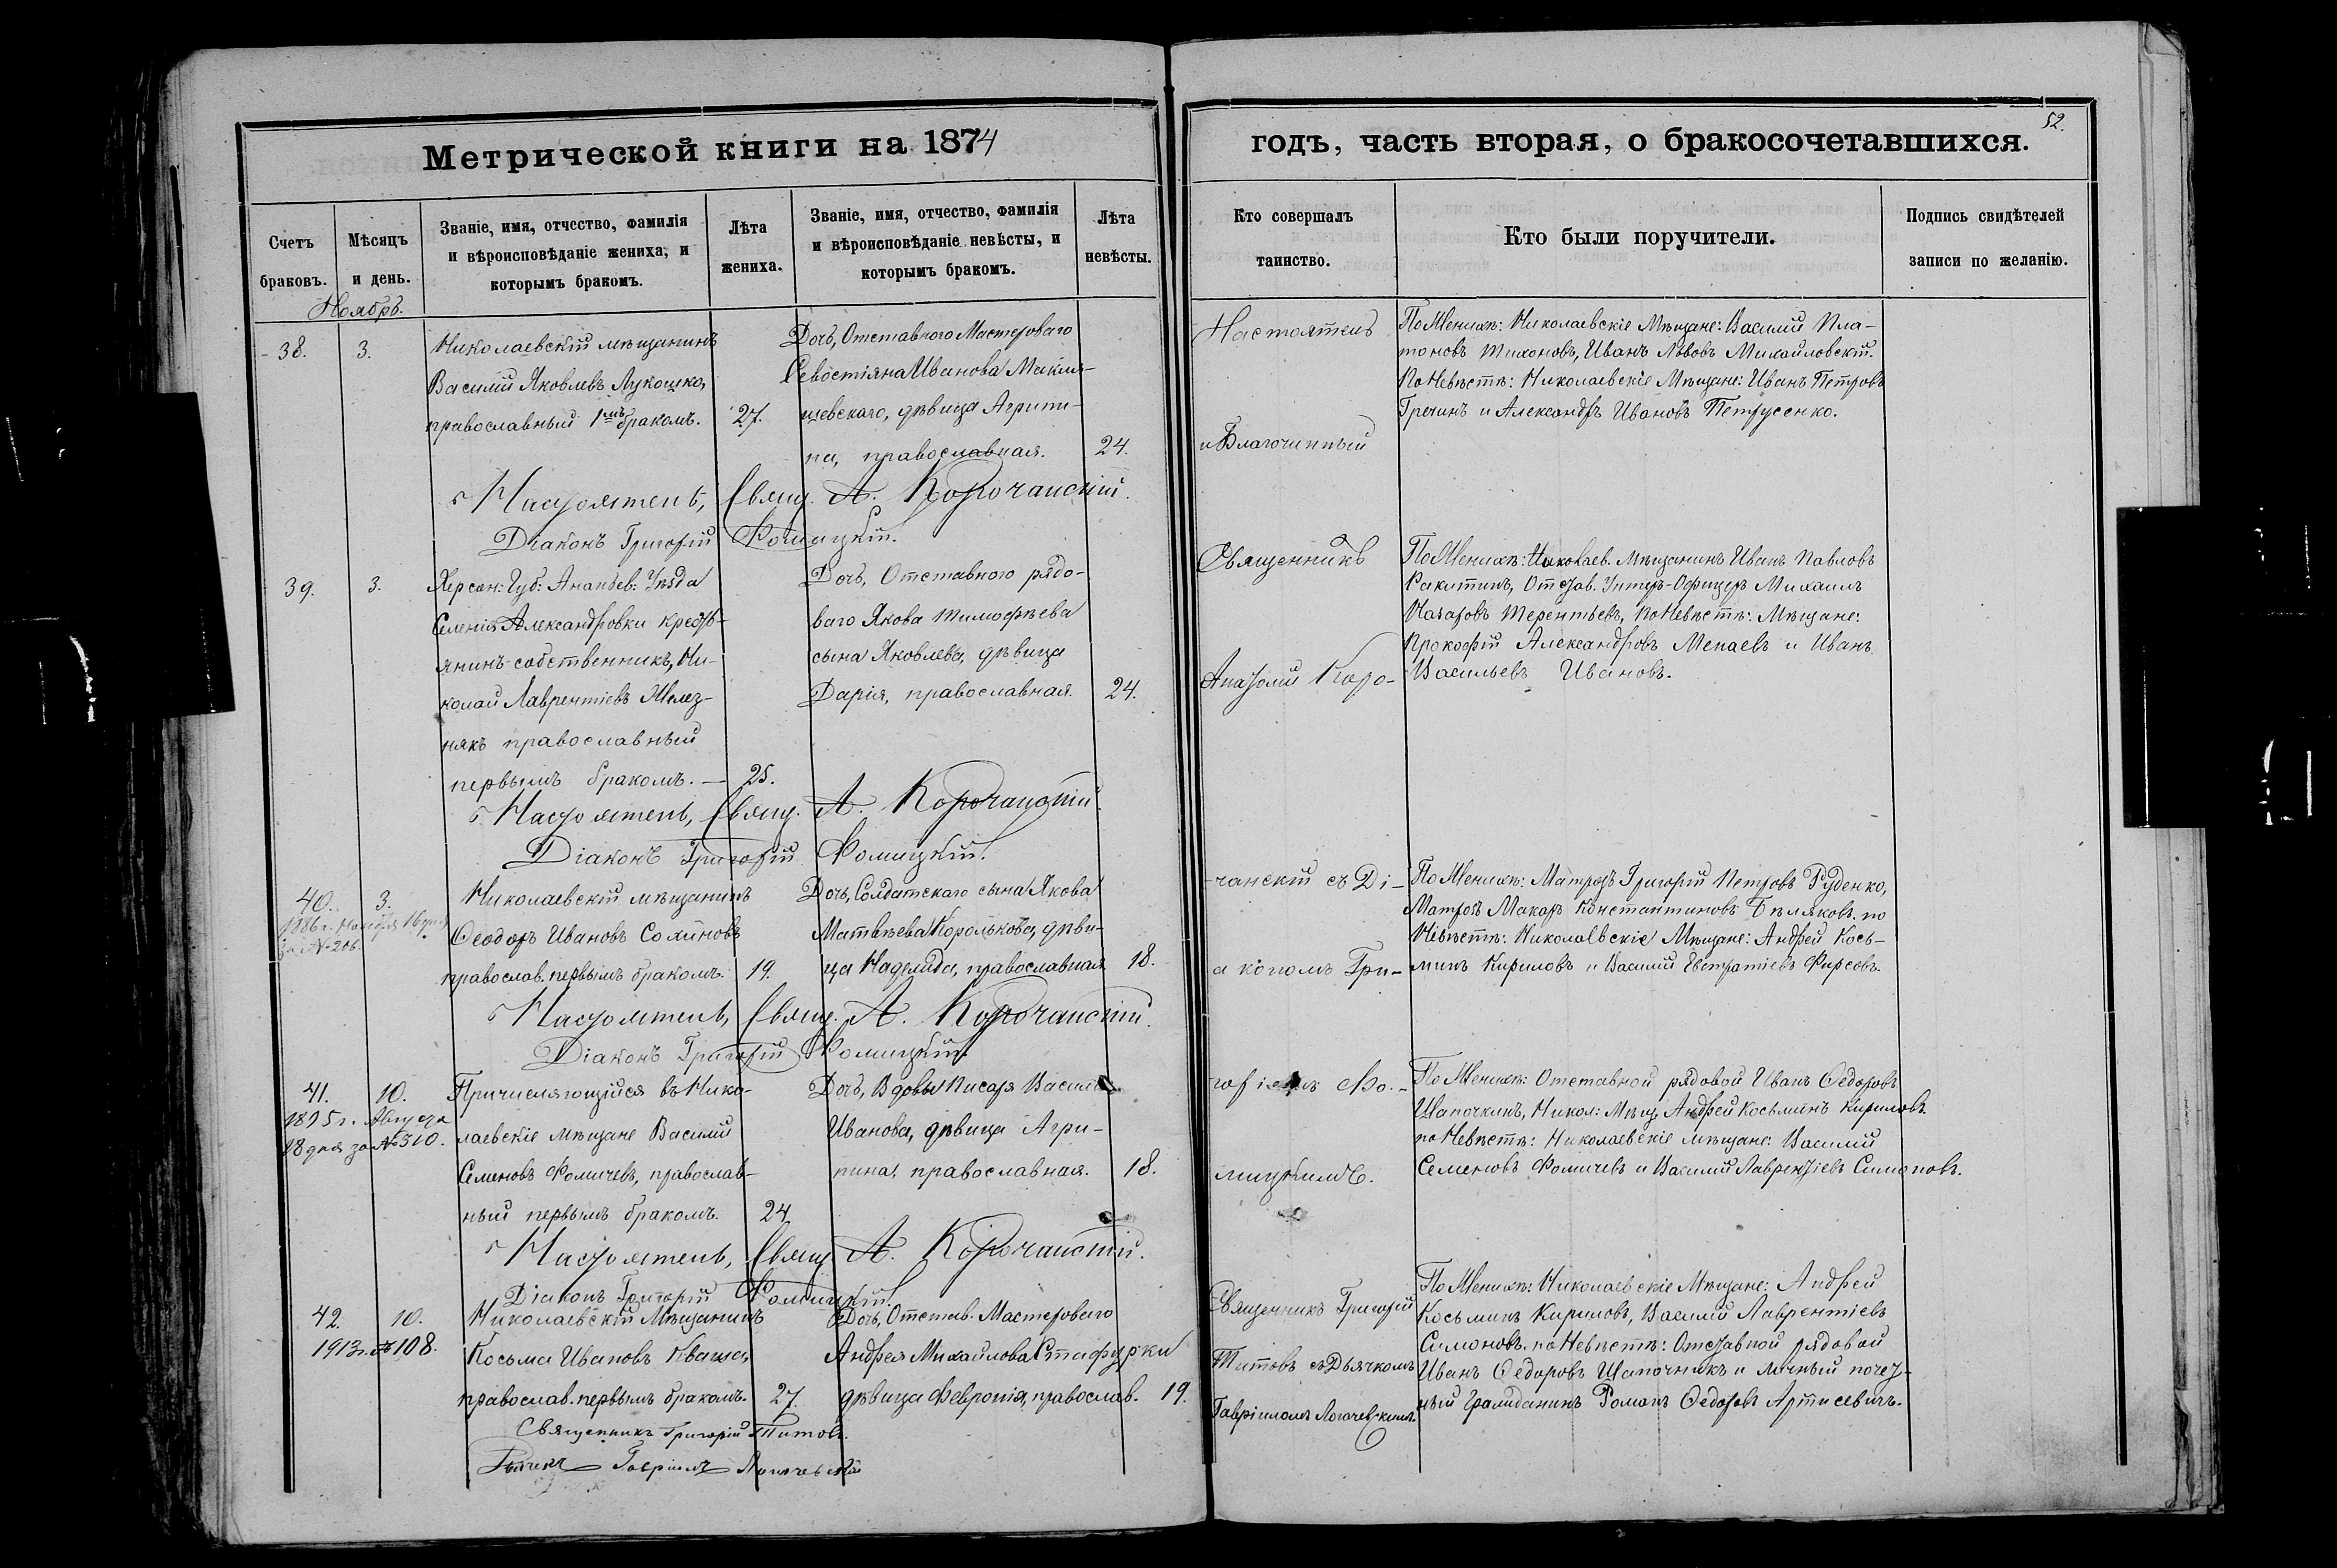 Метрической книги на 1874
Счетъ браковъ.
Мѣсяцъ и день.
Званіе, имя, отчество, фамилія и вѣроисповѣданіе жениха, и которымъ бракомъ.
Лѣта жениха.
Званіе, имя, отчество, фамилія и вѣроисповѣданіе невѣсты, и которымъ бракомъ.
Лѣта невѣсты.
Ноябрь.
38.
3.
Николаевскій мѣщанинъ
Василій Яковлевъ Лукошко,
православный 1мъ бракомъ.
27.
Дочь, Отставного Мастероваго
Севостіяна Иванова
щевскаго, дѣвица Агрипи-
на, православная.
24.
Настоятель, Свящ. А. Корочанскій.
Діаконъ Григорій Фомицкій.
39.
3.
Херсон: Губ: Ананьев: Уѣзда
Селенія Александровки кресть-
янинъ-собственникъ, Ни-
колай Лаврентіевъ Желез-
някъ православный
первымъ бракомъ. —
25.
Дочь, Отставного рядо-
ваго Якова Тимофѣева
сына Яковлева, дѣвица
Дарія, православная.
24.
Настоятель, Свящ. А. Корочанскій
Діаконъ Григорій Фомицкій.
40.
3.
1886 г. Ноября 16 дня
за №206.
Николаевскій мѣщанинъ
Ѳеодоръ Ивановъ
православ. первымъ бракомъ.
19.
Дочь, Солдатскаго сына Якова
Матвѣева Королькова, дѣви-
ца Надежда, православная
18.
Настоятель, Свящ. А. Корочанскій.
Діаконъ Григорій Фомицкій.
41.
10.
1895 г. Августа
18 дня за №310.
Причисляющійся въ Нико-
лаевскіе мѣщане Василій
Семеновъ Фомичевъ, православ-
ный первымъ бракомъ.
24
Дочь, Вдовы Писаря
Иванова, дѣвица Агри-
пина, православная.
18.
Настоятель, Свящ. А. Корочанскій.
Діаконъ Григорій Фомицкій.
42.
10.
1913 г. №108.
Николаевскій Мѣщанинъ
Косьма Ивановъ Кваша,
православ. первымъ бракомъ.
27.
Дочь, Отстав. Мастероваго
Андрея Михайлова Стафурки
дѣвица Февронія, православ.
19.
Священникъ Григорій Титовъ.
Гавріилъ
52.
годъ, часть вторая, о бракосочетавшихся.
Кто совершалъ таинство.
Кто были поручители.
Подпись свидѣтелей записи по желанію.
Настоятель
и Благочинный
По Женихѣ: Николаевскіе Мѣщане: Василій Пла-
тоновъ Тихоновъ, Иванъ Львовъ Михайловскій.
По Невѣстѣ: Николаевскіе Мѣщане: Иванъ Петровъ
Гречинъ и Александръ Ивановъ Петрусенко.
Священникъ
Анатолій Коро-
По Женихѣ: Николаев. Мѣщанинъ Иванъ Павловъ
Ракитинъ, Отстав. Унтеръ-Офицеръ Михаилъ
Назаровъ Терентьевъ, по Невѣстѣ: Мѣщане:
Прокофій Александровъ Менаевъ и Иванъ
Васильевъ Ивановъ.
чанскій съ Ді-
акономъ Гри-
По Женихѣ: Матрозъ Григорій Петровъ Руденко,
Матрозъ Макаръ Константиновъ Бѣляковъ. по
Невѣстѣ: Николаевскіе Мѣщане: Андрей Кось-
минъ Кириловъ и Василій Евстратіевъ Фирсовъ.
горіемъ Фо-
мицкимъ.
По Женихѣ: Отставной рядовой Иванъ Ѳедоровъ
Шапочкинъ, Никол: Мѣщ. Андрей Косьминъ Кириловъ
по Невѣстѣ: Николаевскіе мѣщане: Василій
Семеновъ Фомичевъ и Василій Лаврентіевъ Симоновъ.
Священникъ Григорій
Титовъ съ Дьячкомъ
Гавріиломъ
По Женихѣ: Николаевскіе Мѣщане: Андрей
Косьминъ Кириловъ, Василій Лаврентіевъ
Симоновъ. по Невѣстѣ: Отставной рядовой
Иванъ Ѳедоровъ Шапочникъ и личный почет-
ный Гражданинъ Романъ Ѳедоровъ Артисевичъ.